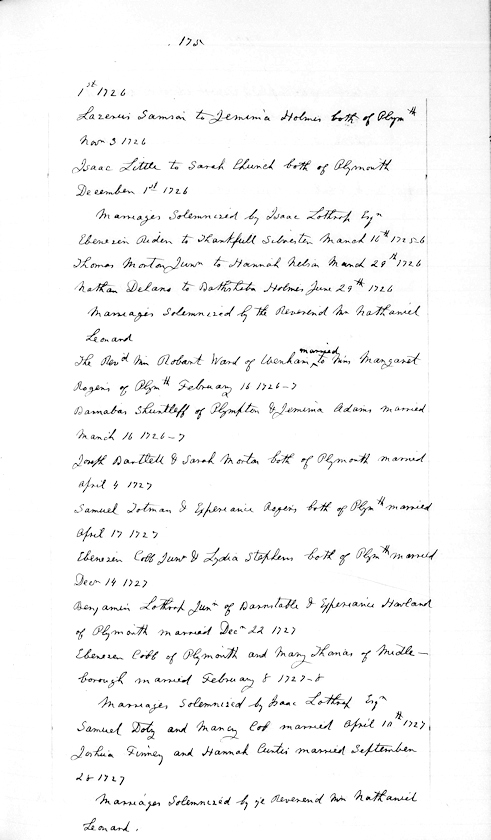 175
1st 1726
Lazerus Samson to Jemimia Holmes both of Plymth
Novr 3 1726
Isaac Little to Sarah Church both of Plymouth
December 1st 1726
Marriages Solemnized by Isaac Lothrop Esqr
Ebenezer Riden to Thankfull Silvester March 16th 1725-6
Thomas Morton Junr to Hannah Nelson March 29th 1726
Nathan Delano to Bathsheba Holmes June 29th 1726
Marriages Solemnized by the Reverend Mr Nathaniel
Leonard
The Revd Mr Robert Ward of Wenham married to Mrs Margaret
Rogers of Plymth February 16 1726-7
Barnabas Shurtleff of Plympton & Jemimia Adams married
March 16 1726-7
Joseph Bartlett & Sarah Morton both of Plymouth married
April 4 1727
Samuel Totman & Experiance Rogers both of Plymth married
April 17 1727
Ebenezer Cobb Junr & Lydia Stephens both of Plymth married
Decr 14 1727
Benjamin Lothrop Junr of Barnstable & Experiance Howland
of Plymouth married Decr 22 1727
Ebenezer Cobb of Plymouth and Mary Thomas of Midle-
borough married February 8 1727-8
Marriages Solemnized by Isaac Lothrop Esqr
Samuel Doty and Marcy Cob married April 10th 1727,
Joshua Finney and Hannah Curtis married September
28 1727
Marriages Solemnized by ye Reverend Mr Nathaniel
Leonard.